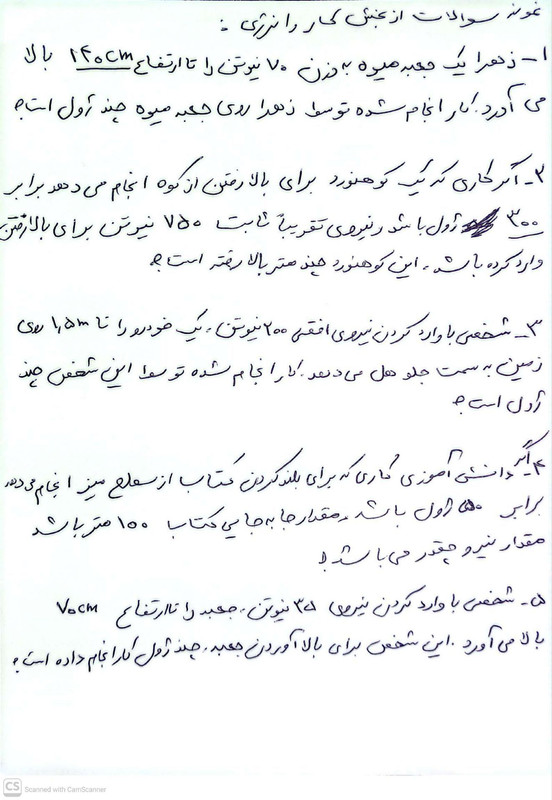 نمونه سوالات از بخش کار و انرژی :
۱- زهرا یک جعبه میوه به وزن ۷۰ نیوتن را تا ارتفاع ۱۴۰cm بالا
می آورد. کار انجام شده توسط زهرا روی جعبه میوه چند ژول است؟
۲- اگر کاری که یک کوهنورد برای بالا رفتن از کوه انجام می دهد برابر
۳۰۰ ژول باشد و نیروی تقریباً ثابت ۷۵۰ نیوتن برای بالا رفتن
وارد کرده باشد. این کوهنورد چند متر بالا رفته است؟
۳- شخصی با وارد کردن نیروی افقی ۲۰۰ نیوتن، یک خودرو را تا ۱٫۵m روی
زمین به سمت جلو هل می دهد. کار انجام شده توسط این شخص چند
ژول است؟
۴- اگر دانش آموزی کاری که برای بلند کردن کتاب از سطح میز انجام می دهد
برابر ۵۰ ژول باشد و مقدار جا به جایی کتاب ۱۰۰ متر باشد
مقدار نیرو چقدر می باشد؟
۵- شخصی با وارد کردن نیروی ۳۵ نیوتن، جعبه را تا ارتفاع ۷۰cm
بالا می آورد. این شخص برای بالا آوردن جعبه، چند ژول کار انجام داده است؟
CS Scanned with CamScanner